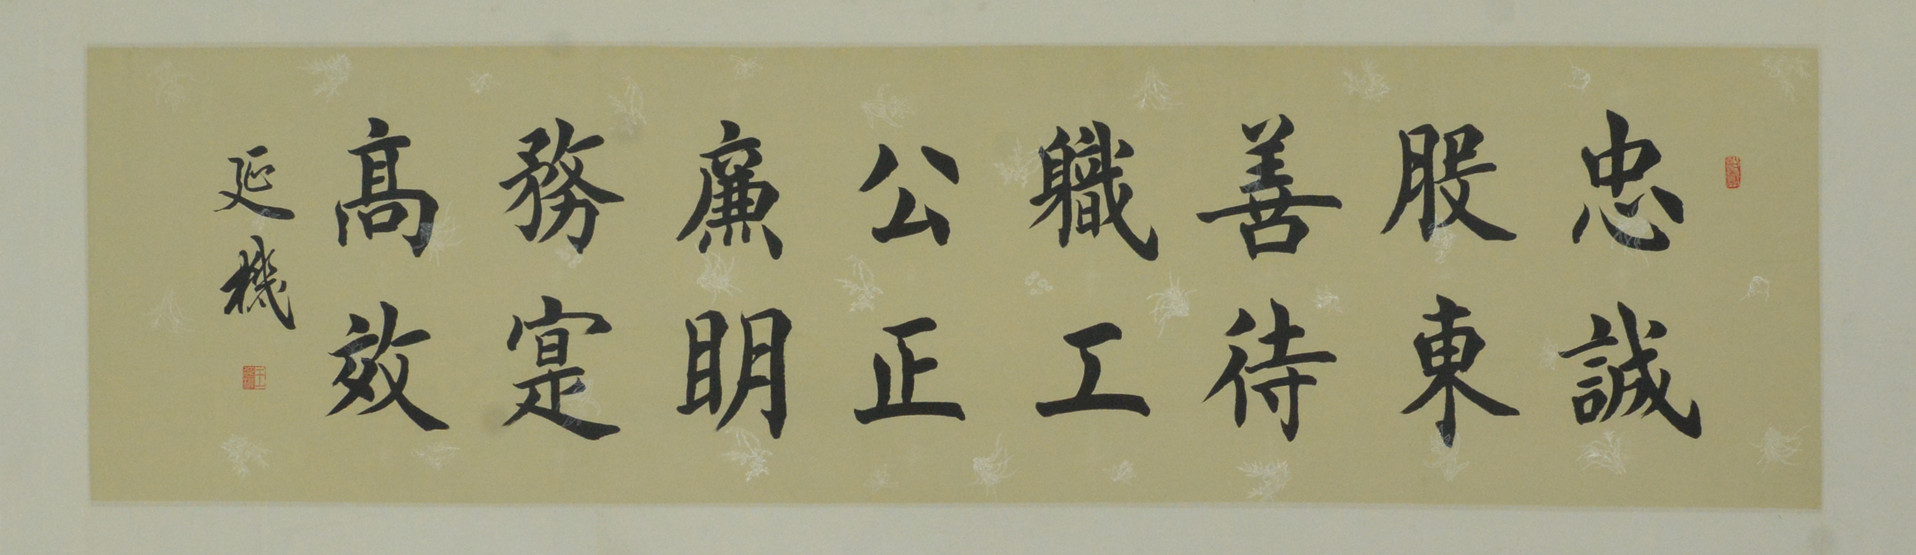 忠誠
股東
善待
軄工
公正
廉明
務寔
高效
延機